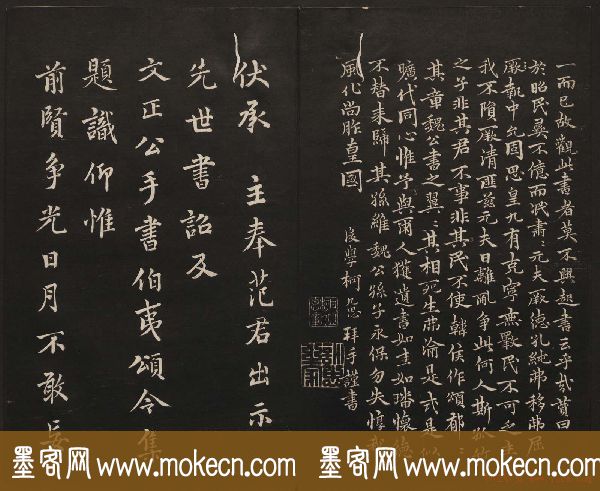 一而已故觀此書者莫不興起書云乎哉贊曰
於昭民彝不億而泯肅肅元夫厥德孔純弗移弗屈
厥執中允固思皇九有克寧無斁民不可
我不隕厥清匪元夫日離亂爭此何人斯
之子非其君不事非其民不使韓侯作頌郁
其章魏公書之翼翼其相死生弗渝是式是
曠代同心惟予與爾人獲遺書如圭如璠懷德
不替來歸其孫維魏公孫子永保勿失惇
風化尚胙皇國
後學柯九思拜手謹書
伏承 主奉范君出示
先世書詔及
文正公手書伯夷頌令集
題識仰惟
前賢爭光日月不敢妄
墨客网 www.mokecn.com 墨客网 www.mokecn.com